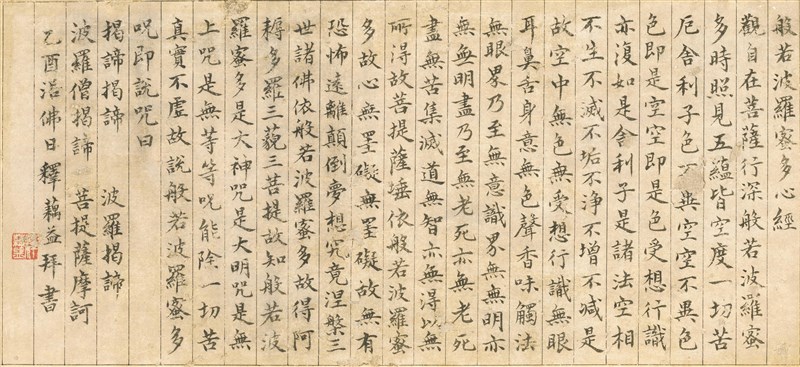 般若波羅蜜多心經
觀自在菩薩行深般若波羅蜜
多時照見五蘊皆空度一切苦
厄舍利子色不異空空不異色
色即是空空即是色受想行識
亦復如是舍利子是諸法空相
不生不滅不垢不淨不增不減是
故空中無色無受想行識無眼
耳鼻舌身意無色聲香味觸法
無眼界乃至無意識界無無明亦
無無明盡乃至無老死亦無老死
盡無苦集滅道無智亦無得以無
所得故菩提薩埵依般若波羅蜜
多故心無罣礙無罣礙故無有
恐怖遠離顛倒夢想究竟涅槃三
世諸佛依般若波羅蜜多故得阿
耨多羅三藐三菩提故知般若波
羅蜜多是大神咒是大明咒是無
上咒是無等等咒能除一切苦
真實不虛故說般若波羅蜜多
咒即說咒曰
揭諦揭諦 波羅揭諦
波羅僧揭諦 菩提薩摩訶
乙酉浴佛日釋藕益拜書